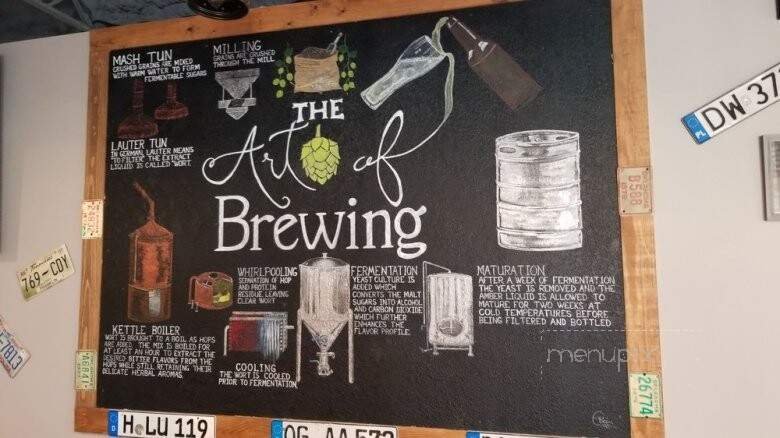 MASH TUN
CRUSHED GRAINS ARE MIXED
WITH WARM WATER TO FORM
FERMENTABLE SUGARS
MILLING
GRAINS ARE CRUSHED
THROUGH THE MILL
LAUTER TUN
IN GERMAN, LAUTER MEANS
"TO FILTER". THE EXTRACT
LIQUID IS CALLED "WORT."
THE
Art of
Brewing
KETTLE BOILER
WORT IS BROUGHT TO A BOIL AS HOPS
ARE ADDED. THE MIX IS BOILED FOR
AT LEAST AN HOUR TO EXTRACT THE
DESIRED BITTER FLAVORS FROM THE
HOPS WHILE STILL RETAINING THEIR
DELICATE HERBAL AROMAS.
WHIRLPOOLING
SEPARATION OF HOP
AND PROTEIN
RESIDUE, LEAVING
CLEAR WORT
COOLING
THE WORT IS COOLED
PRIOR TO FERMENTATION
FERMENTATION
YEAST CULTURE IS
ADDED WHICH
CONVERTS THE MALT
SUGARS INTO ALCOHOL
AND CARBON DIOXIDE
WHICH FURTHER
ENHANCES THE
FLAVOR PROFILE.
MATURATION
AFTER A WEEK OF FERMENTATION
THE YEAST IS REMOVED AND THE
AMBER LIQUID IS ALLOWED TO
MATURE FOR TWO WEEKS AT
COLD TEMPERATURES BEFORE
BEING FILTERED AND BOTTLED
PL
DW 37
B588
769-CDY
26774
D
H LU 119
D
OG AA 573
menupix